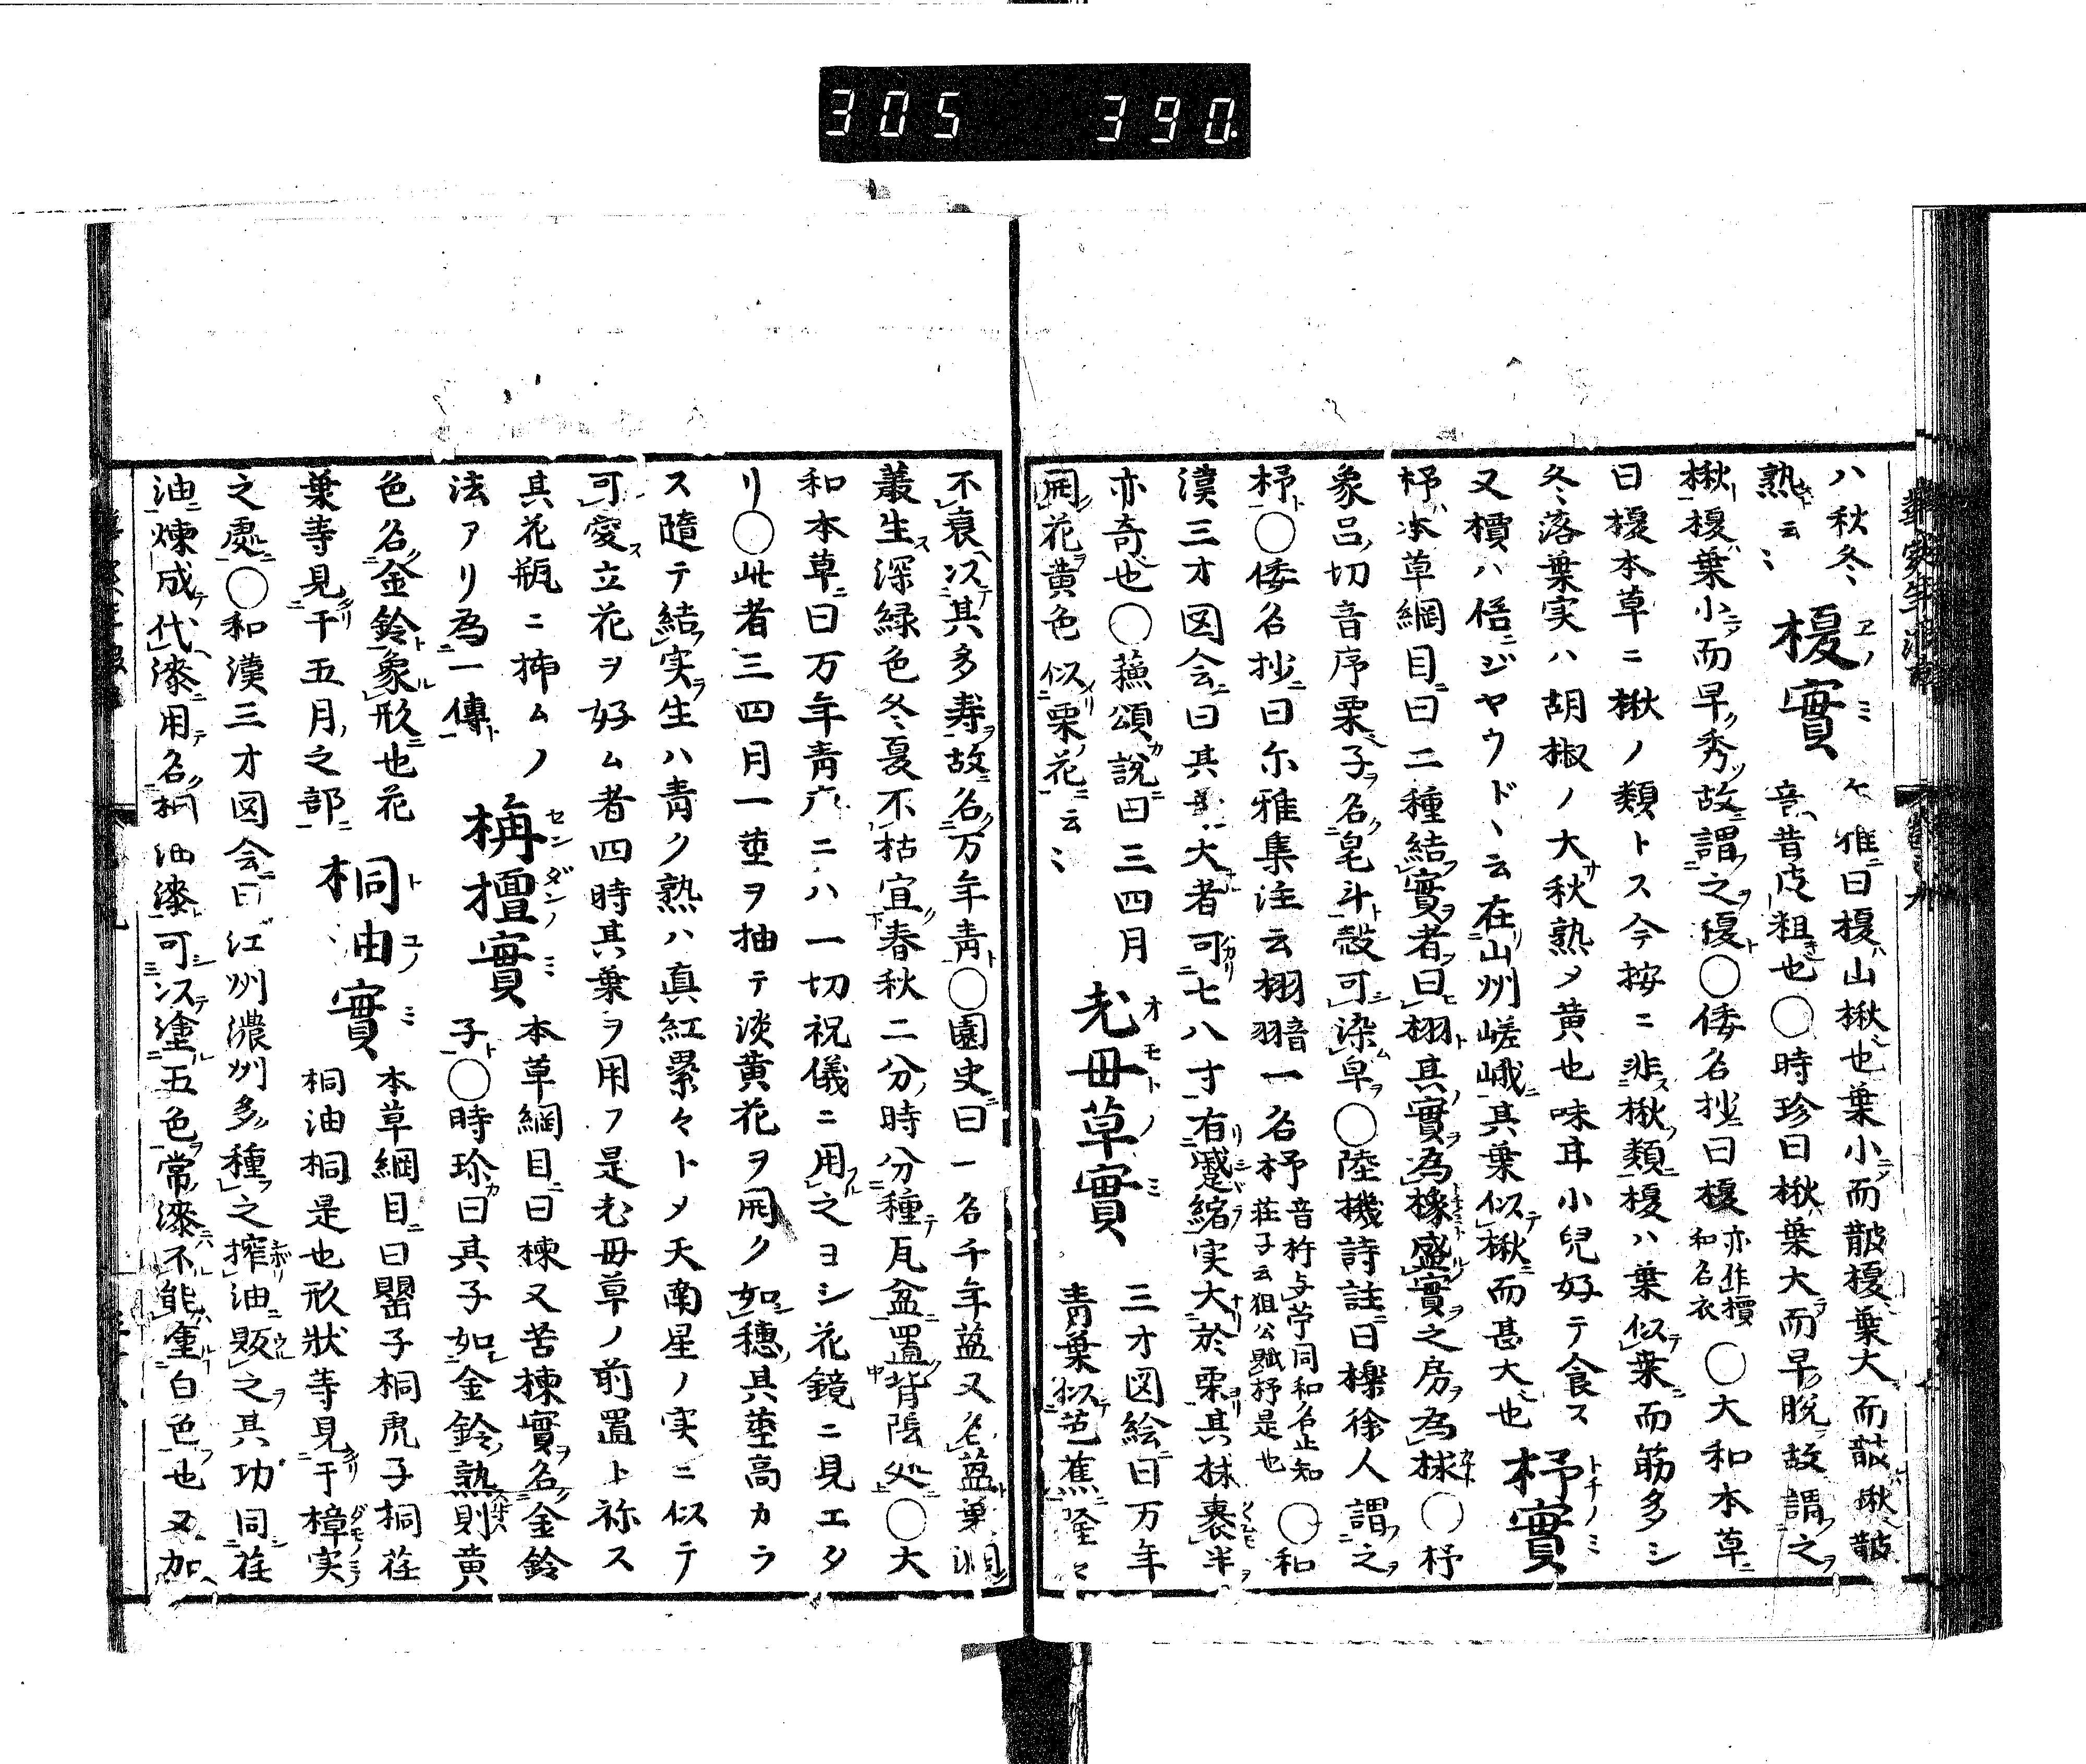 305 390.
ハ秋冬〻 榎實 雅曰榎山楸也葉小而皵榎葉大而皵楸皵
熟云〻 音昔皮粗也○時珍曰楸葉大而早脱故謂之
楸榎葉小而早秀故謂之榎○倭名抄曰榎 亦作檟 和名衣 ○大和本草
曰榎本草ニ楸ノ類トス今按ニ非楸類榎ハ葉似葉而筋多シ
冬〻落葉実ハ胡椒ノ大秋熟メ黄也味耳小兒好テ食ス
又檟ハ俉ジヤウド〻云在山州嵯峨其葉似楸而甚大也 杼實
杼本草綱目曰二種結實者曰栩其實為橡盛實之房為梂○杼
象呂切音序栗子名皂斗殻可染皁○陸機詩註曰櫟徐人謂之
杼○倭名抄曰尓雅集注云栩羽音一名杼 音杵与苧同和名止知 荘子云狙公賦杼是也 ○和
漢三才図会曰其葉大者可七八寸有蹙縮実大於栗其梂裹半
亦奇也○蘓頌説曰三四月 老母草實 三才図絵曰万年
開花黄色似栗花云〻 青葉似芭蕉隆々
不衰以其多寿故名万年青○園史曰一名千年蒀又名蒀葉
叢生深緑色冬夏不枯宜春秋二分時分種瓦盆置背陰処○大
和本草曰万年青六ニハ一切祝儀ニ用之ヨシ花鏡ニ見エタ
リ○此者三四月一莖ヲ抽テ淡黄花ヲ開ク如穗其莖高カラ
ス隨テ結実生ハ青ク熟ハ真紅累々トメ天南星ノ実ニ似テ
可愛立花ヲ好ム者四時其葉ヲ用フ是老母草ノ前置ト祢ス
其花瓶ニ挿ムノ 栴檀實 本草綱目曰楝又苦楝實名金鈴
法アリ為一傳 子○時珍曰其子如金鈴熟則黄
色名金鈴象形也花 桐油實 本草綱目曰罌子桐虎子桐荏
葉等見于五月之部 桐油桐是也形狀等見于樟実
之處○和漢三才図会曰江州濃州多種之搾油販之其功同荏
油煉成代漆用名桐油漆可以塗五色常漆不能塗白色也又加